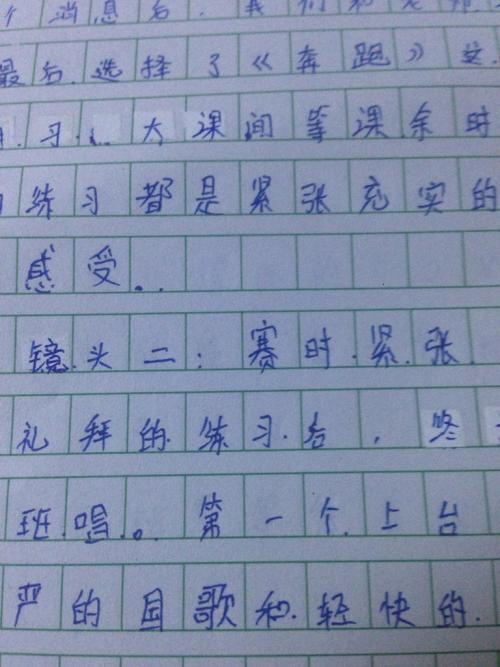 个消息后，我们和
最后选择了《奔跑》这
习...大课间等课余时
练习都是紧张充实的
感受..
镜头二：赛时紧张
礼拜的练习后，终
班唱。第一个上台
严的国歌和轻快的